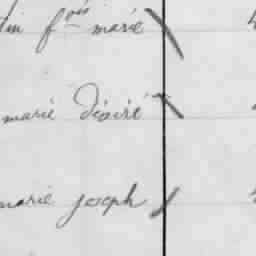 f.ois marie
marie Désiré
marie joseph